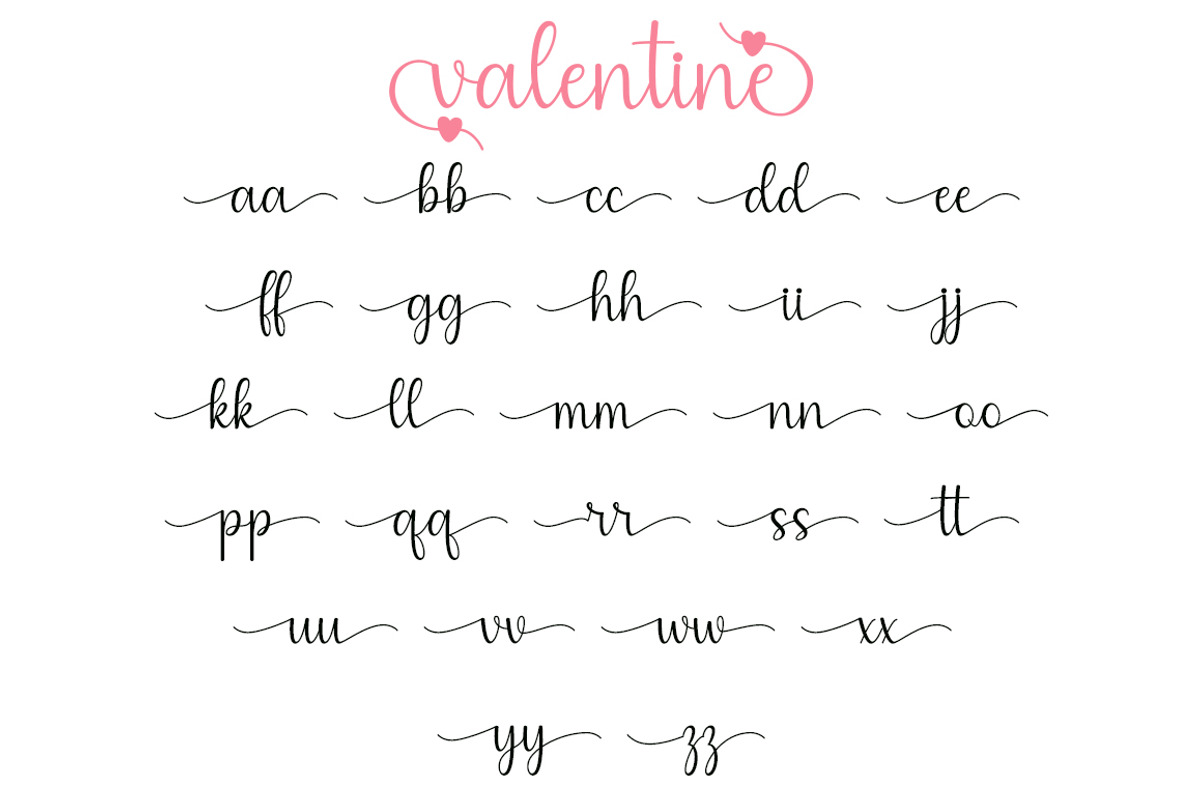 valentine
aa bb cc dd ee
ff gg hh ii jj
kk ll mm nn oo
pp qq rr ss tt
uu vv ww xx
yy zz